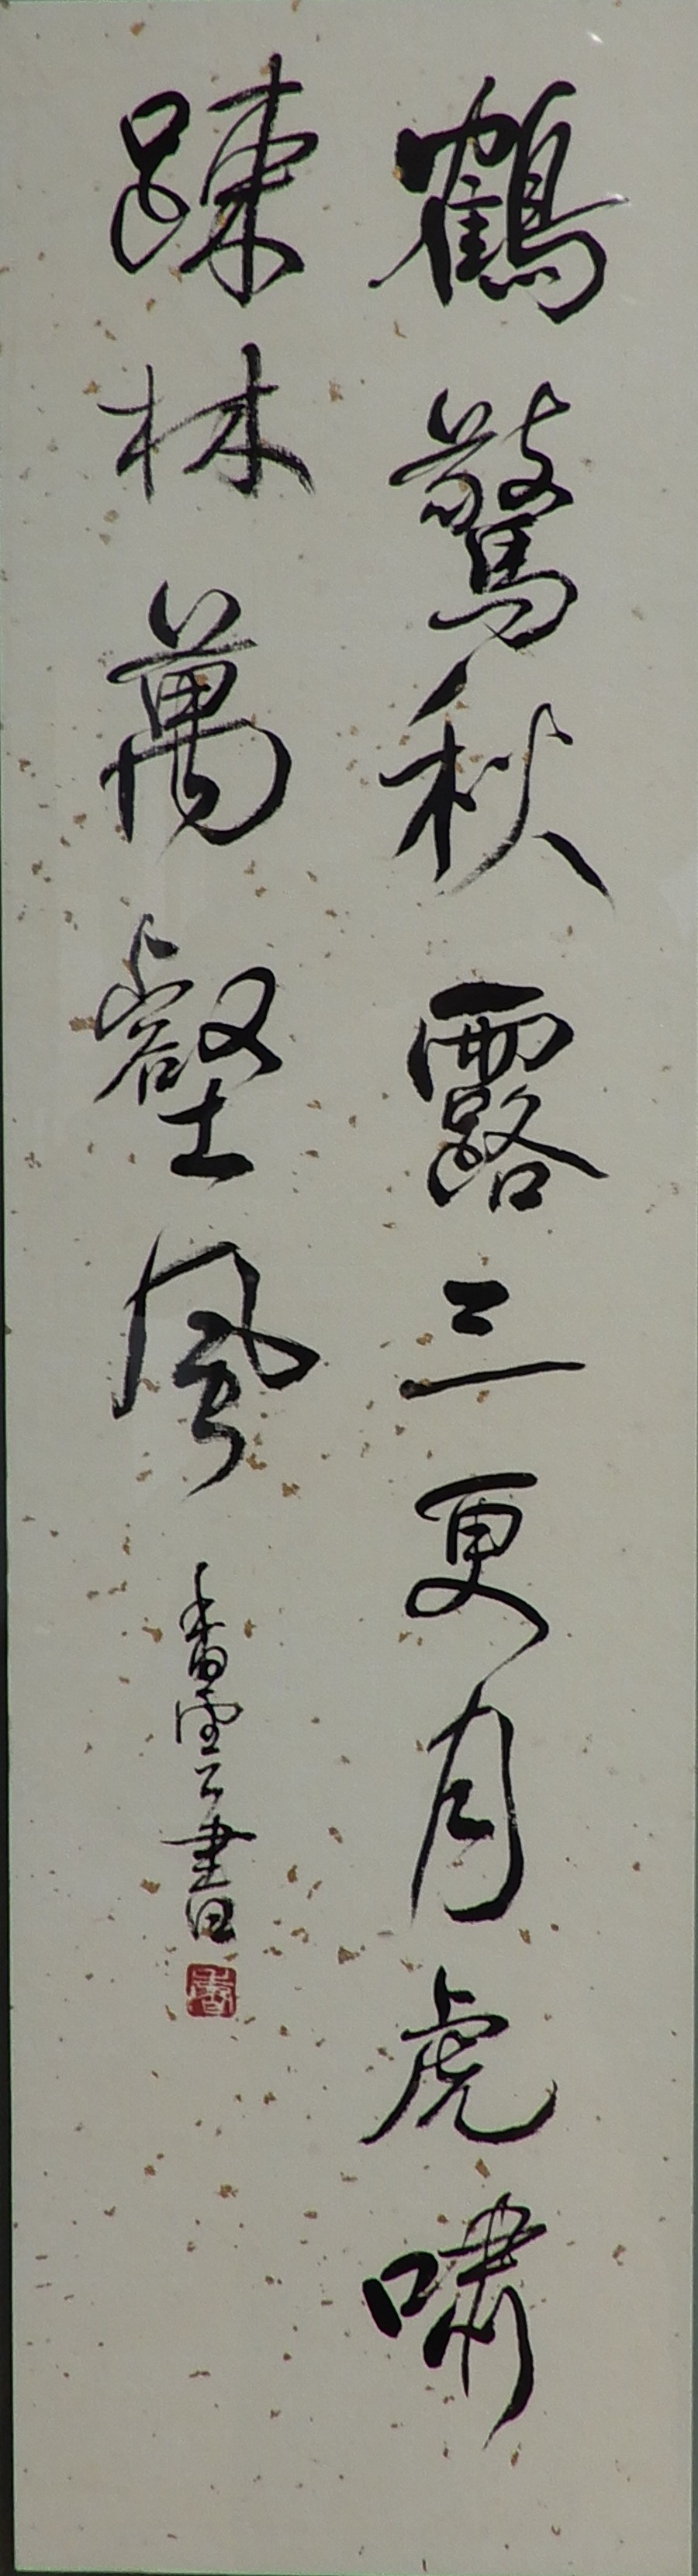 鶴驚秋露三更月虎嘯
踈林萬壑風
香雲書